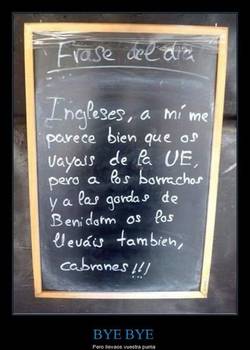 Frase del día
Ingleses, a mí me
parece bien que os
vayais de la UE,
pero a los borrachos
y a las gordas de
Benidorm os los
lleváis tambien,
cabrones!!!
BYE BYE
Pero llevaos vuestra puma